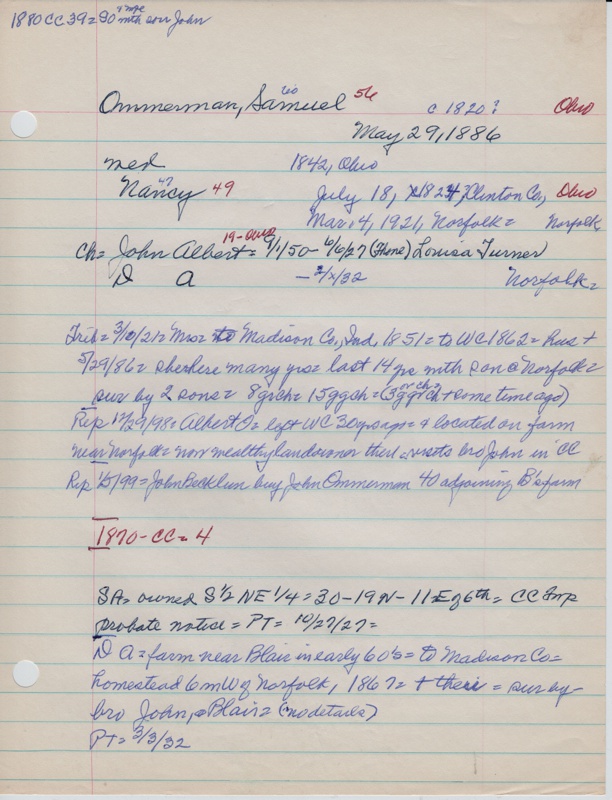 1880 CC 39 = 90 mth son John
Ommerman, Samuel 56 c 1820? Ohio
60
May 29, 1886
med 1842, Ohio
Nancy 49 July 18, 1824, Clinton Co., Ohio
47
Mar. 4, 1921, Norfolk = Norfolk
ch = John Albert = 9/1/50 - 6/6/27 (Home) Louisa Turner
19 - Ohio
D A - 2/x/32 Norfolk =
Trib = 3/10/21 = Mrs = to Madison Co., Ind. 1851 = to WC 1862 = Hus +
5/29/86 = she here many yrs = last 14 yrs mth son @ Norfolk =
sur by 2 sons = 8 grch = 15 ggch = (3 ggrch + come time ago)
or ch?
Rep 12/29/98 = Albert O = left WC 30 yrs ago = + located on farm
near Norfolk = now wealthy landowner there = visits bro John in CC
Rep 1/5/99 = John buy John Ommerman 40 adjoining B's farm
1870 - CC = 4
SA = owned S 1/2 NE 1/4 = 30-19N-11E of 6th = CC Smp
probate notice = PT = 10/27/27 =
D A = farm near Blair in early 60's = to Madison Co =
homestead 6 m W of Norfolk, 1867 = + there = sur by
bro John, @ Blair = (no details)
PT = 3/3/32